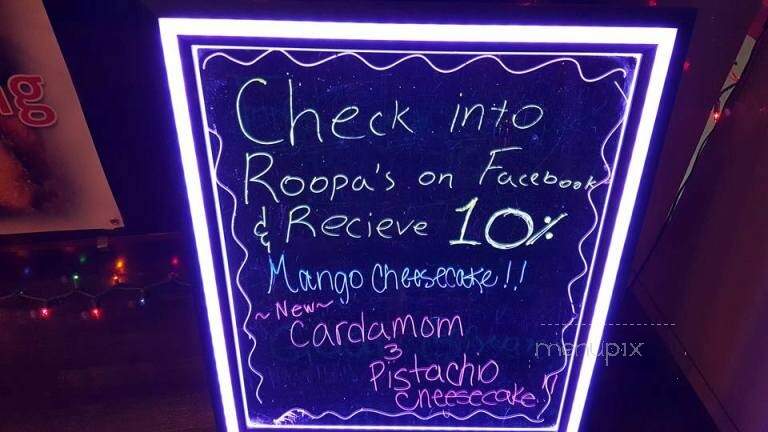 ng
Check into
Roopa's on Facebook
& Recieve 10%
Mango Cheesecake!!
~New~
Cardamom
&
Pistachio
Cheesecake!!
menupix